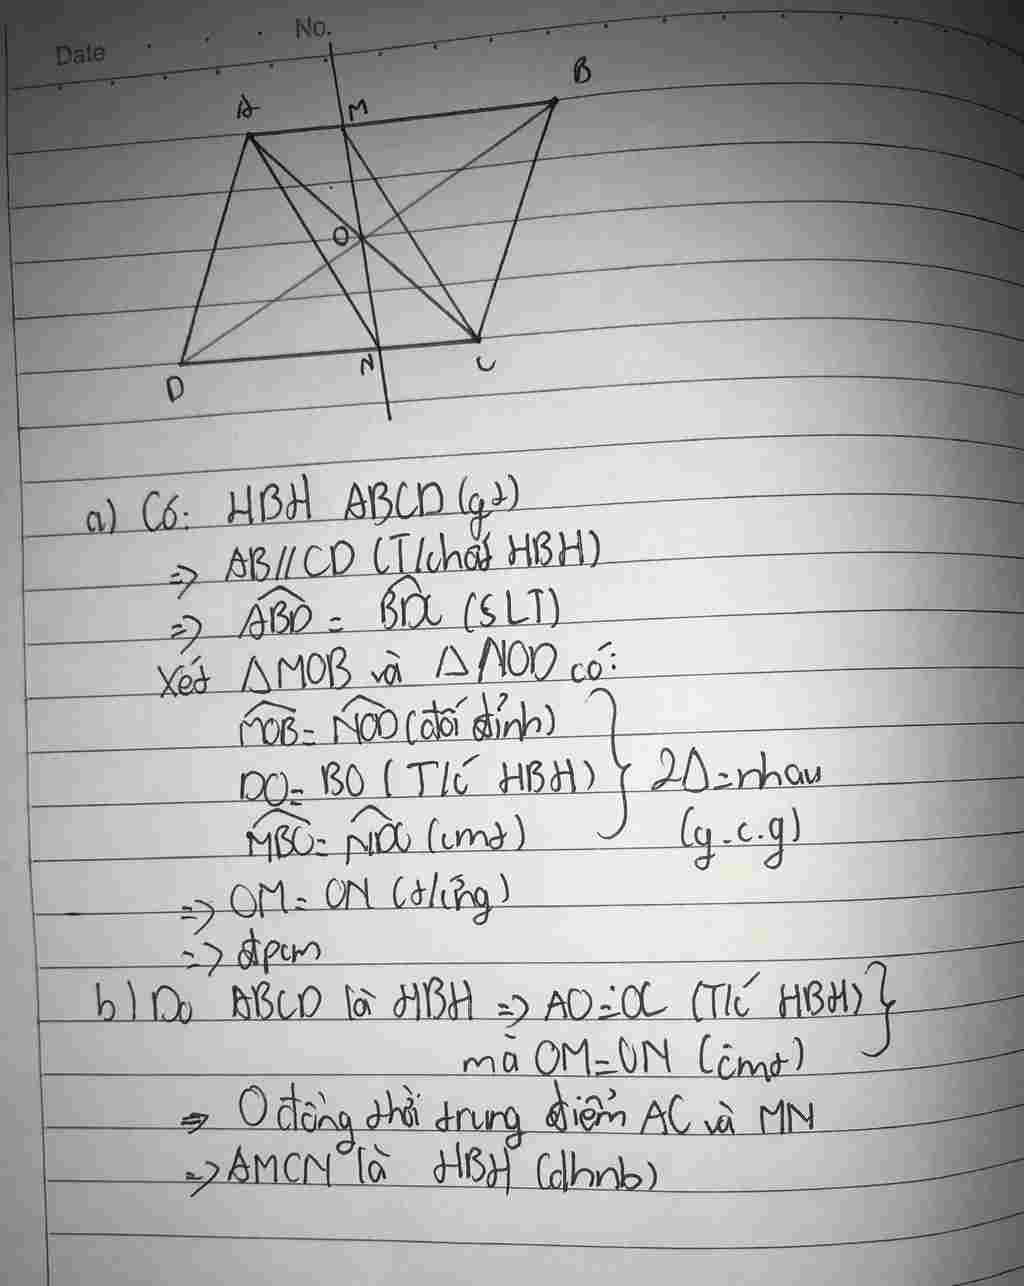 Date No.
A M B
O
D N C
a) Có: HBH ABCD (gt)
=> AB//CD (T/chất HBH)
=> ABD = BDC (SLT)
Xét ΔMOB và ΔNOD có:
MOB = NOD (đối đỉnh)
DO = BO (T/c HBH) } 2Δ = nhau
MBO = NDO (cmt) (g.c.g)
=> OM = ON (t/ứng)
=> đpcm
b) Do ABCD là HBH => AO = OC (T/c HBH) }
mà OM = ON (cmt)
=> O đồng thời trung điểm AC và MN
=> AMCN là HBH (dhnb)